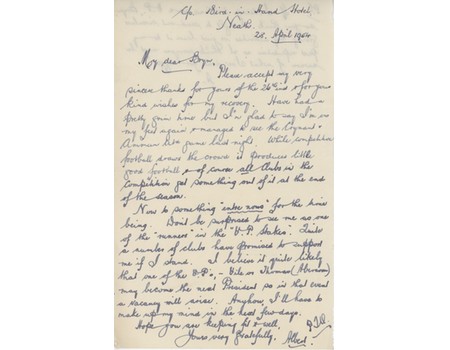 c/o Bird-in-Hand Hotel,
Neath.
28. April 1964
My dear Bryn,
Please accept my very
sincere thanks for yours of the 26th inst & for your
kind wishes for my recovery. Have had a
pretty grim time but I'm glad to say I'm on
my feet again & managed to see the Aspinant
Ammon tie game last night. While competition
football draws the crowd it produces little
good football & of course all clubs in the
Competition get something out of it at the end
of the season.
Now to something "entre nous" for the time
being. Don't be surprised to see me as one
of the "runners" in the "V-P. Stakes". Quite
a number of clubs have promised to support
me if I stand. I believe it quite likely
that one of the V-P's, - Vile or Thomas (
may become the next President so in that event
a vacancy will arise. Anyhow, I'll have to
make up my mind in the next few days.
Hope you are keeping fit & well,
Yours very gratefully,
Albert.